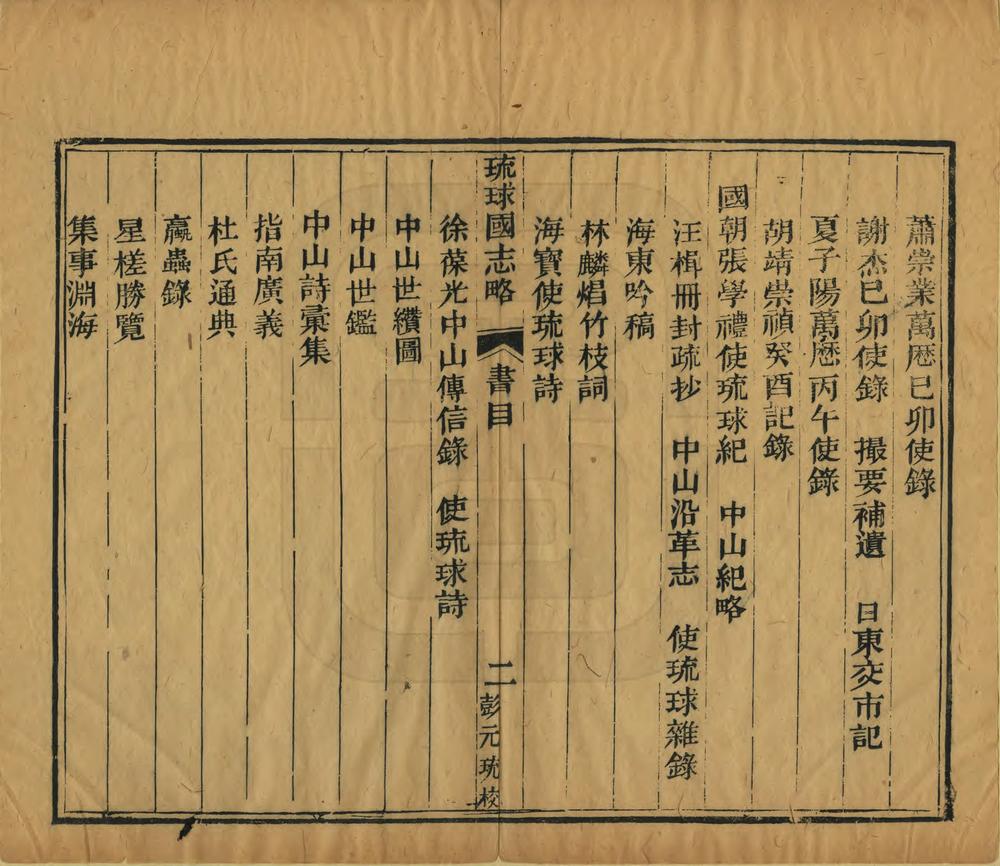 蕭崇業萬歷己卯使錄
謝杰己卯使錄　撮要補遺　日東交市記
夏子陽萬歷丙午使錄
胡靖崇禎癸酉記錄
國朝張學禮使琉球紀　中山紀略
汪楫冊封疏抄　中山沿革志　使琉球雜錄
海東吟稿
林麟焻竹枝詞
海寶使琉球詩
琉球國志略　書目　二　彭元珫校
徐葆光中山傳信錄　使琉球詩
中山世纘圖
中山世鑑
中山詩彙集
指南廣義
杜氏通典
蠃蟲錄
星槎勝覽
集事淵海